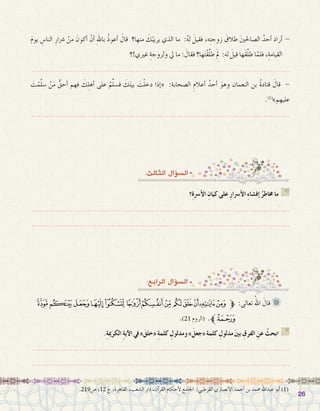 - أرادَ أحدُ الصالحينَ طلاقَ زوجتِه، فقيلَ لهُ: ما الذي يريبُكَ منها؟ قال أعوذُ باللهِ أنْ أكونَ منْ شرارِ الناسِ يومَ
القيامةِ، فلمّا طلّقَها قيلَ له: لمَ طلّقْتَها؟ فقالَ: ما لي ولزوجةِ غيري؟!
- قالَ قتادةُ بن النعمان وهوَ أحدُ أعلامِ الصحابة: «إذا دخلْتَ بيتَكَ فسلِّمْ على أهلِكَ فهم أحقُّ مَنْ سلّمْتَ
عليهم»(1).
• السؤال الثالث:
ما مخاطرُ إفشاءِ الأسرارِ على كيانِ الأسرةِ؟
• السؤال الرابع:
قالَ اللهُ تعالى: ﴿ وَمِنْ ءَايَٰتِهِۦٓ أَنْ خَلَقَ لَكُم مِّنْ أَنفُسِكُمْ أَزْوَٰجًا لِّتَسْكُنُوٓا۟ إِلَيْهَا وَجَعَلَ بَيْنَكُم مَّوَدَّةً
وَرَحْمَةً ﴾. (الروم 21).
ابحثْ عن الفرقِ بينَ مدلولِ كلمةِ «جعل» ومدلولِ كلمةِ «خلق» في الآيةِ الكريمةِ.
(1) أبو عبد الله محمد بن أحمد الأنصاري القرطبي: الجامع لأحكام القرآن، دار الشعب، القاهرة، ج 12، ص219.
26